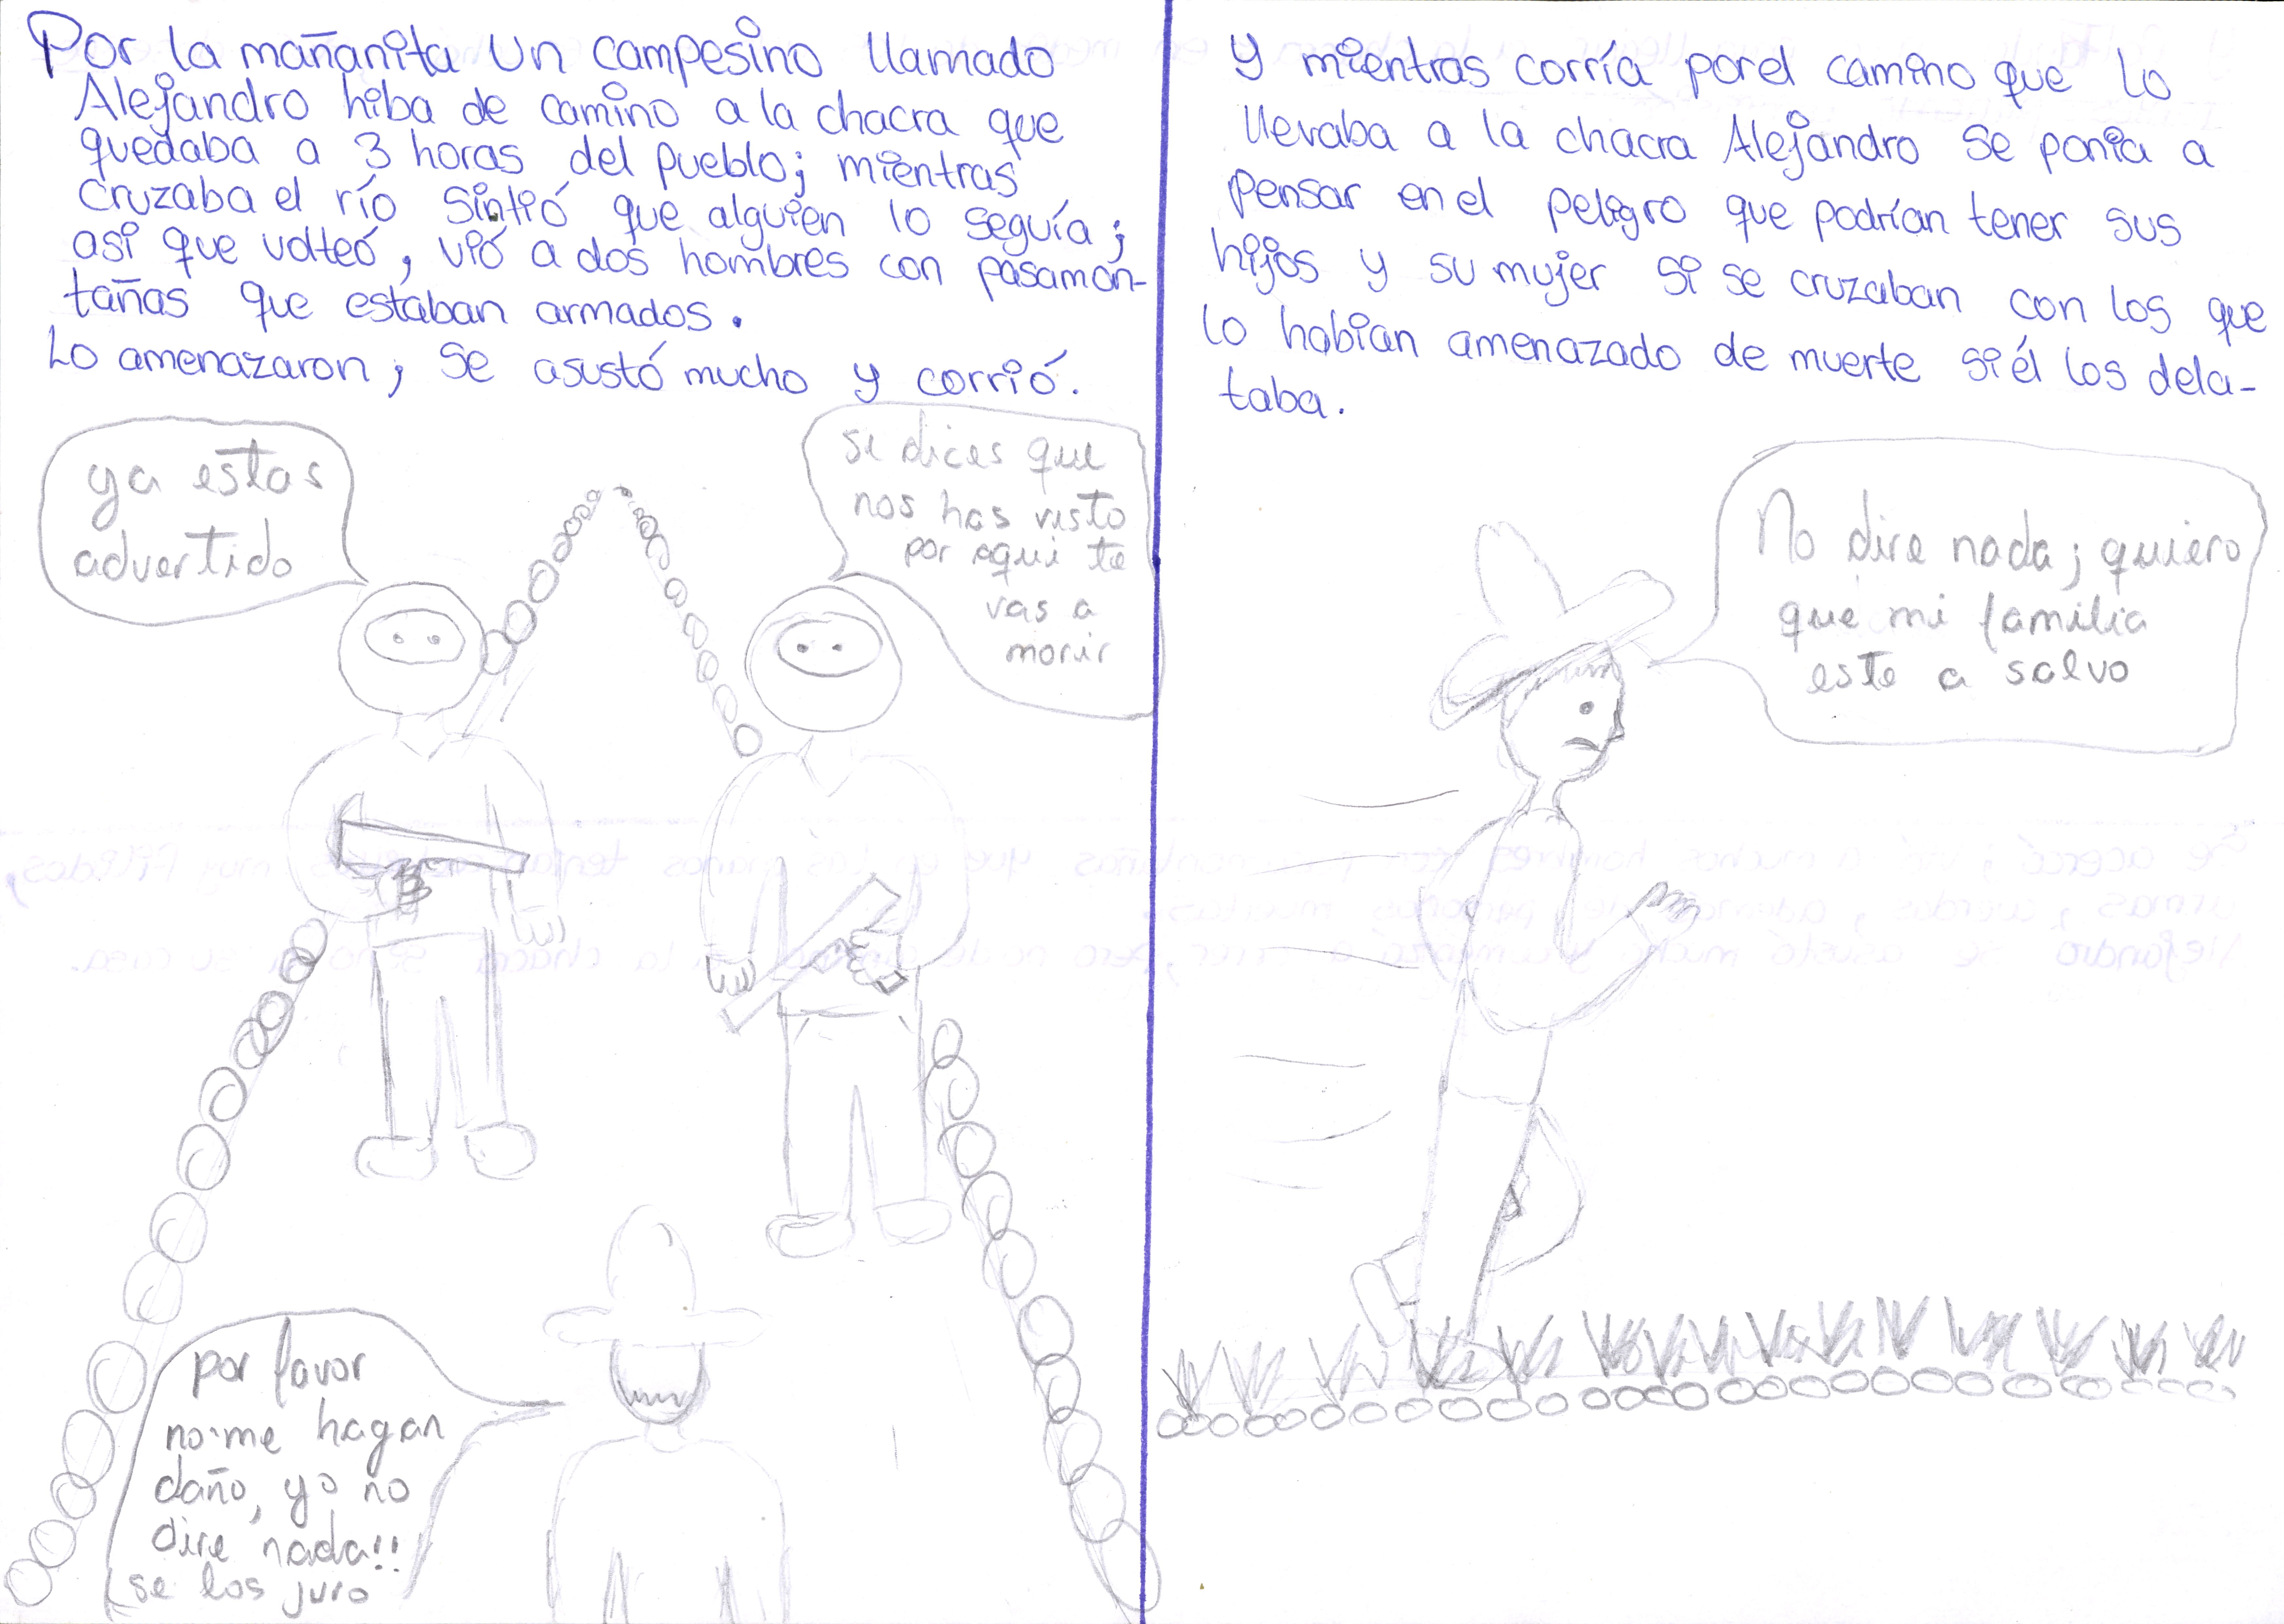 Por la mañanita un campesino llamado
Alejandro hiba de camino a la chacra que
quedaba a 3 horas del pueblo; mientras
cruzaba el río sintió que alguien lo seguía;
asi que volteó, vió a dos hombres con pasamon-
tañas que estaban armados.
Lo amenazaron; se asustó mucho y corrió.
ya estas
advertido
si dices que
nos has visto
por aqui te
vas a
morir
por favor
no me hagan
daño, yo no
dire nada!!
se los juro
y mientras corría por el camino que lo
llevaba a la chacra Alejandro se ponia a
pensar en el peligro que podrían tener sus
hijos y su mujer si se cruzaban con los que
lo habian amenazado de muerte si él los dela-
taba.
No dire nada; quiero
que mi familia
este a salvo